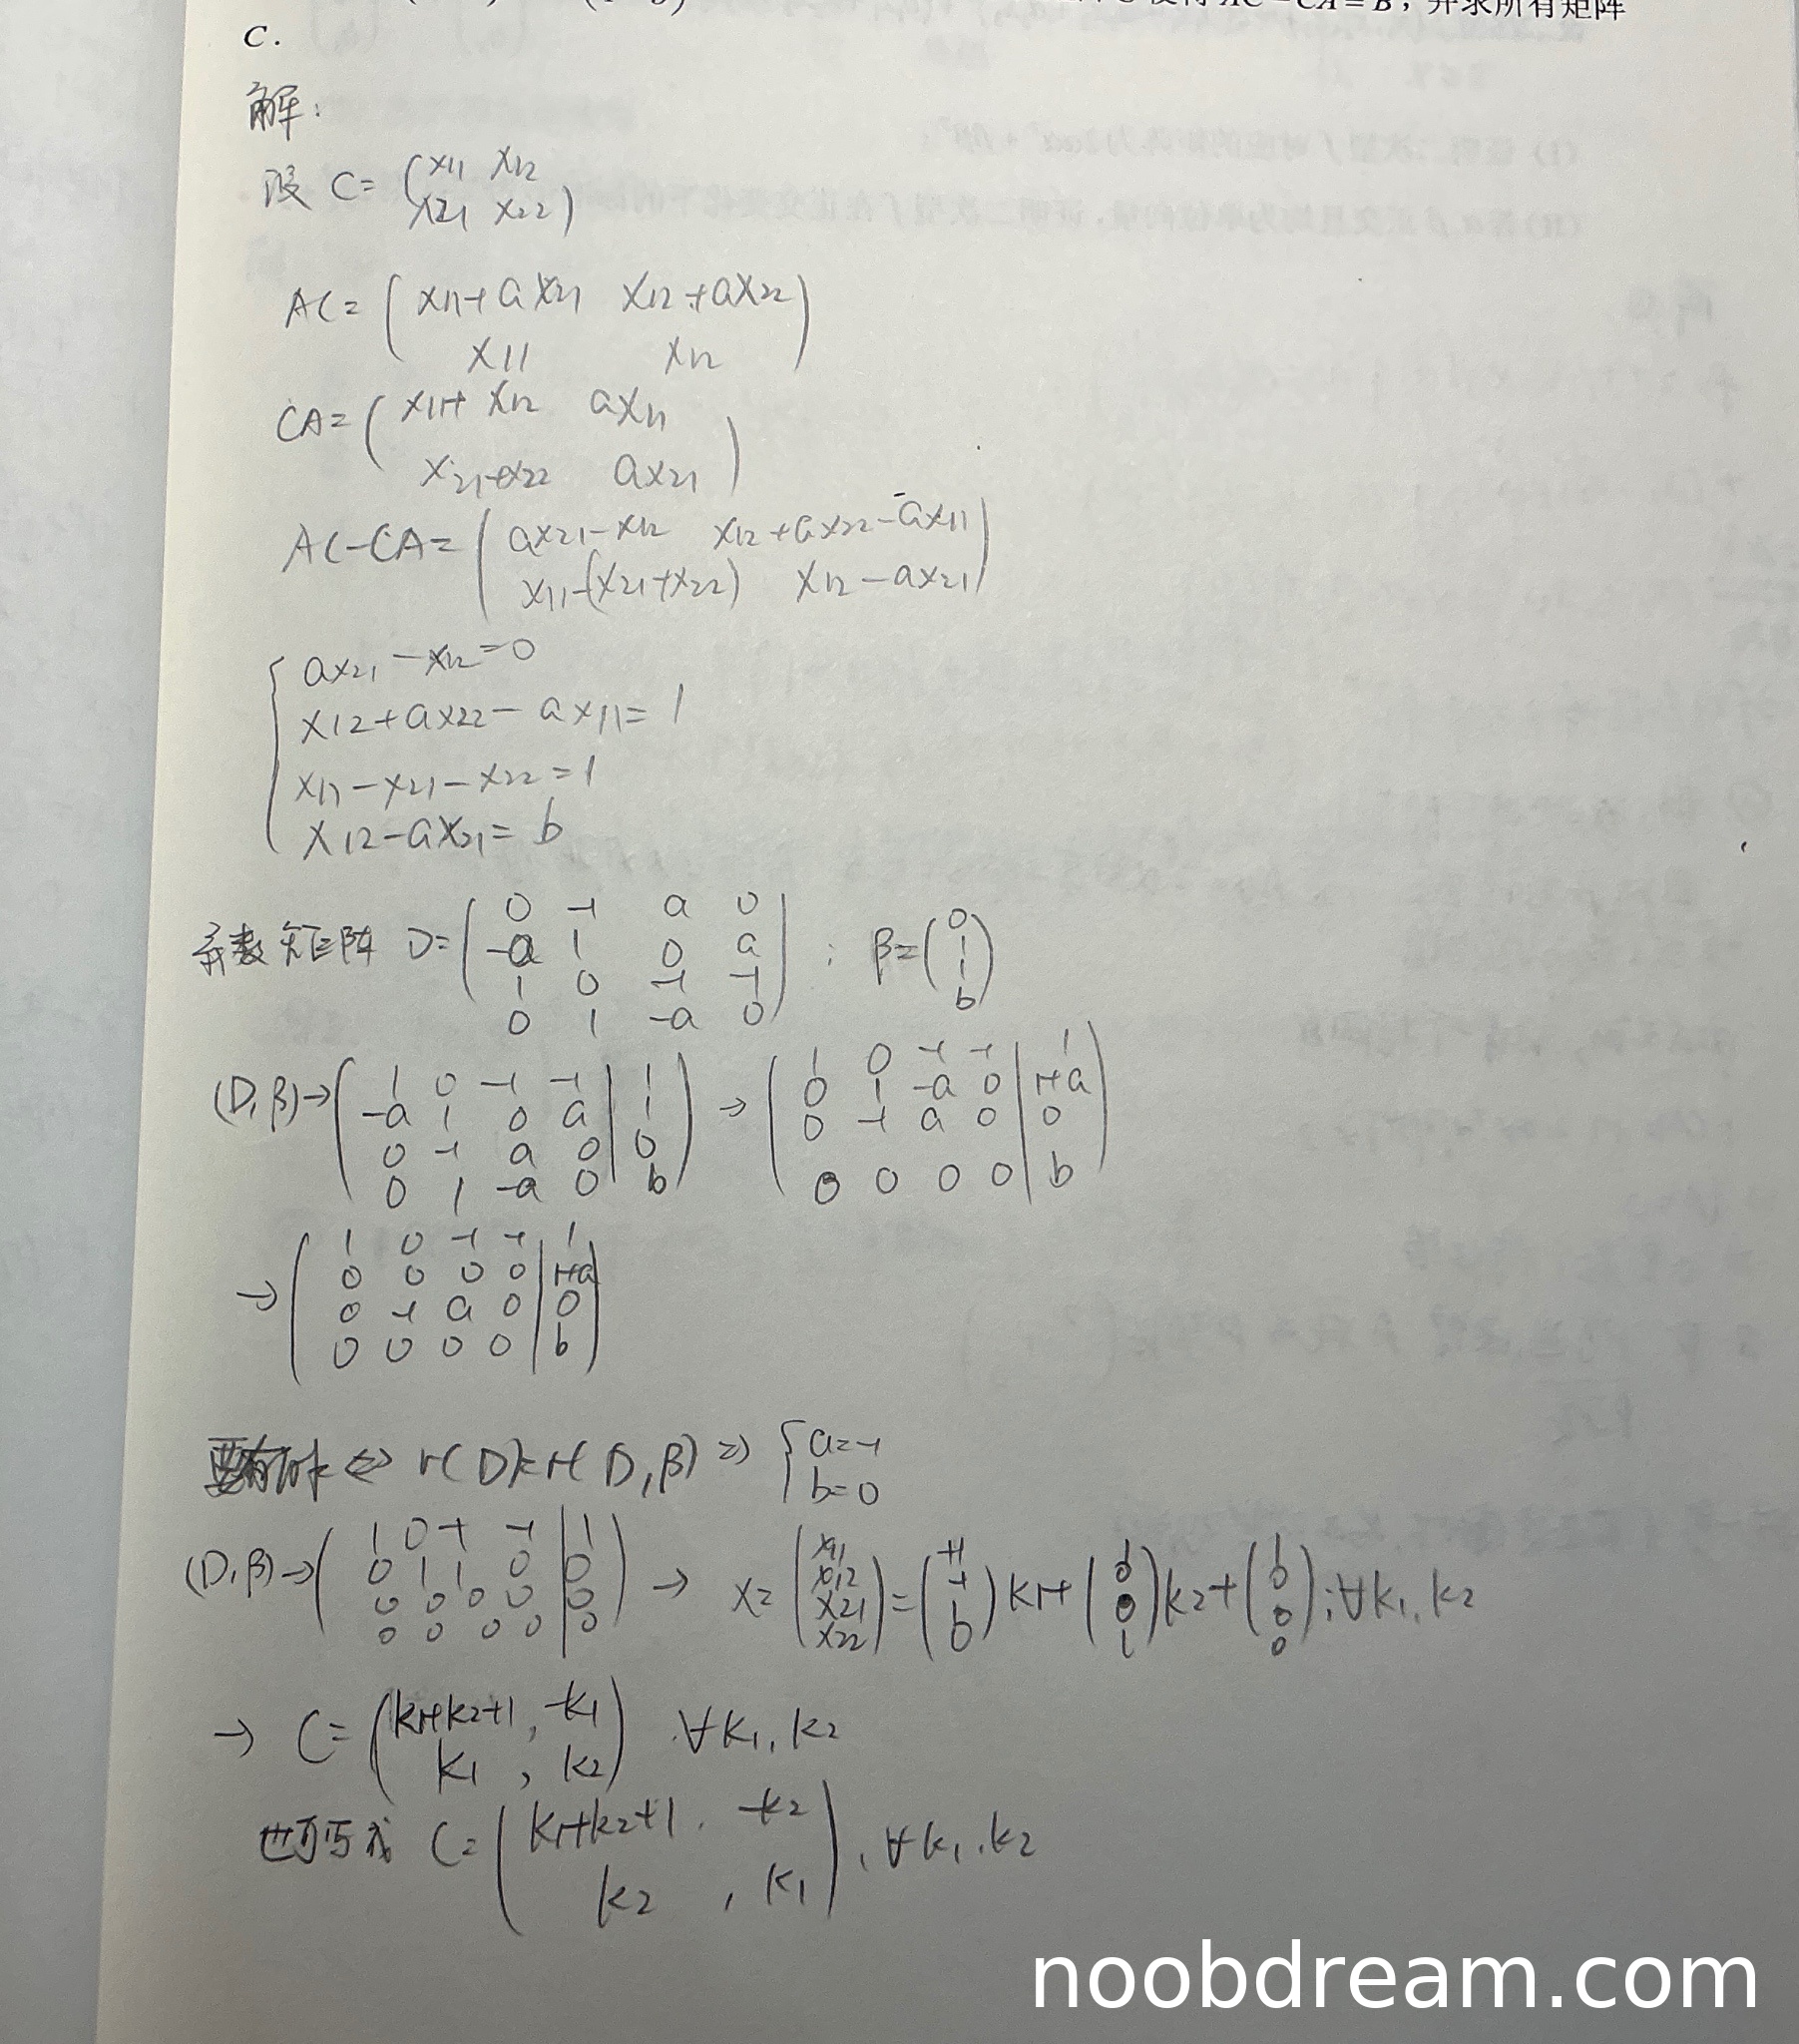 使得 AC-CA=B，并求所有矩阵
C.
解:
设 C= (x11 x12
x21 x22)
AC= (x11+ax21 x12+ax22
x11 x12)
CA= (x11+x12 ax11
x21+x22 ax21)
AC-CA= (ax21-x12 x12+ax22-ax11
x11-(x21+x22) x12-ax21)
{ ax21-x12=0
x12+ax22-ax11=1
x11-x21-x22=1
x12-ax21=b
系数矩阵 D= (0 -1 a 0
-a 1 0 a
1 0 -1 -1
0 1 -a 0) ; β= (0 1 1 b)
(D,β)→ (1 0 -1 -1 | 1
-a 1 0 a | 1
0 -1 a 0 | 0
0 1 -a 0 | b)
→ (1 0 -1 -1 | 1
0 1 -a 0 | 1+a
0 -1 a 0 | 0
0 0 0 0 | b)
→ (1 0 -1 -1 | 1
0 0 0 0 | 1+a
0 -1 a 0 | 0
0 0 0 0 | b)
⇔ r(D)=r(D,β) ⇒ { a=-1
b=0
(D,β)→ (1 0 -1 -1 | 1
0 1 1 0 | 0
0 0 0 0 | 0
0 0 0 0 | 0)
→ x= (x11 x12 x21 x22) = (+1 -1 1 0) k1+ (1 0 0 1) k2+ (1 0 0 0) ; ∀k1, k2
→ C= (k1+k2+1, -k1
k1 , k2) ∀k1, k2
也可写成 C= (k1+k2+1, -k2
k2 , k1) , ∀k1, k2
noobdream.com